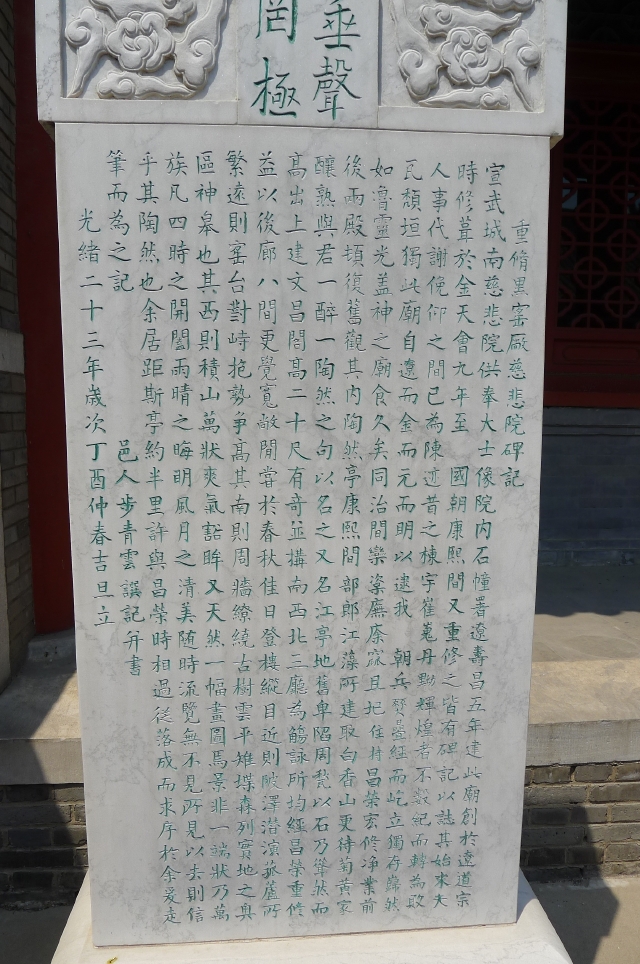 垂聲
罔極
重脩黑窑厰慈悲院碑記
宣武城南慈悲院供奉大士像院内石幢署遼壽昌五年建此廟創於遼道宗
時修葺於金天會九年至 國朝康熙間又重修之皆有碑記以誌其始末夫
人事代謝俛仰之間已為陳迹昔之棟宇崔嵬丹黝輝煌者不數紀而轉為敗
瓦頹垣獨此廟自遼而金而元而明以逮我 朝兵燹疊經而屹立獨存巋然
如魯靈光盖神之廟食久矣同治間欒粢廡且圮住持昌榮宏修净業前
後兩殿頓復舊觀其内陶然亭康熙間部郎江藻所建取白香山更待菊黄家
釀熟與君一醉一陶然之句以名之又名江亭地舊卑陷周甃以石乃聳然而
高出上建文昌閣高二十尺有奇並搆南西北三廳為觴詠所均經昌榮重修
益以後廊八間更覺寬敞閒嘗於春秋佳日登樓縱目近則陂澤潜演菰蘆所
繁遠則窑台對峙抱勢争高其南則周牆繚繞古樹雲平雉堞森列實地之奥
區神皋也其西則積山萬狀爽氣豁眸又天然一幅畫圖焉景非一端狀乃萬
族凡四時之開闔雨晴之晦明風月之清美随時流覽無不見所見以去則信
乎其陶然也余居距斯亭約半里許與昌榮時相過從落成而求序於余爰走
筆而為之記
邑人步青雲譔記并書
光緒二十三年歲次丁酉仲春吉旦立